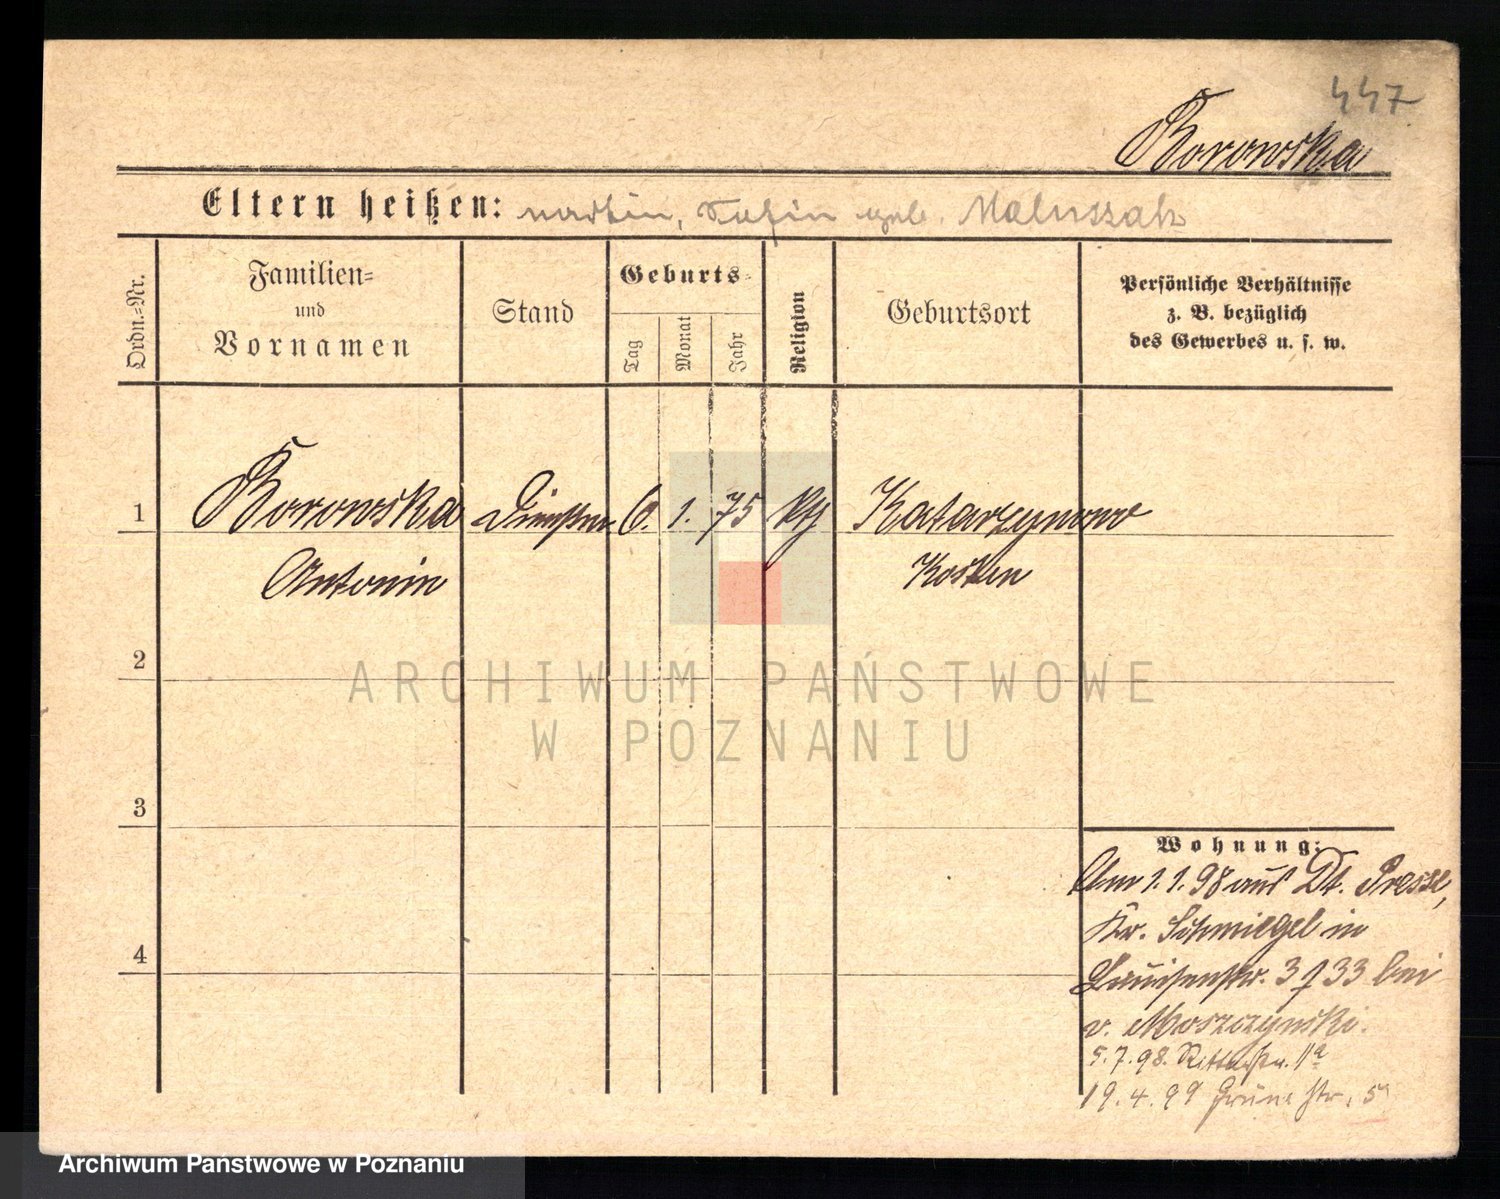 447
Borowska
Eltern heißen: Martin, Sofia geb. Maluszak
Ordn.=Nr.
Familien=
und
Vornamen
Stand
Geburts=
Tag
Monat
Jahr
Religion
Geburtsort
Persönliche Verhältnisse
z. B. bezüglich
des Gewerbes u. s. w.
1 Borowska 6. 1. 75 Katarzynowo
Antonin Kosten
2
3
4
Wohnung:
Am 1.1.98 aus Dt. Presse,
Kr. Schmiegel in
Louisenstr. 3 33 bei
v. Moszczynski.
5.7.98. Ritterstr. 11a
19.4.99 Grüne Str. 5
ARCHIWUM PAŃSTWOWE
W POZNANIU
Archiwum Państwowe w Poznaniu